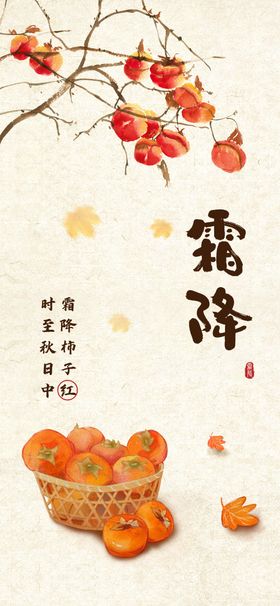 霜降
霜降柿子红
时至秋日中